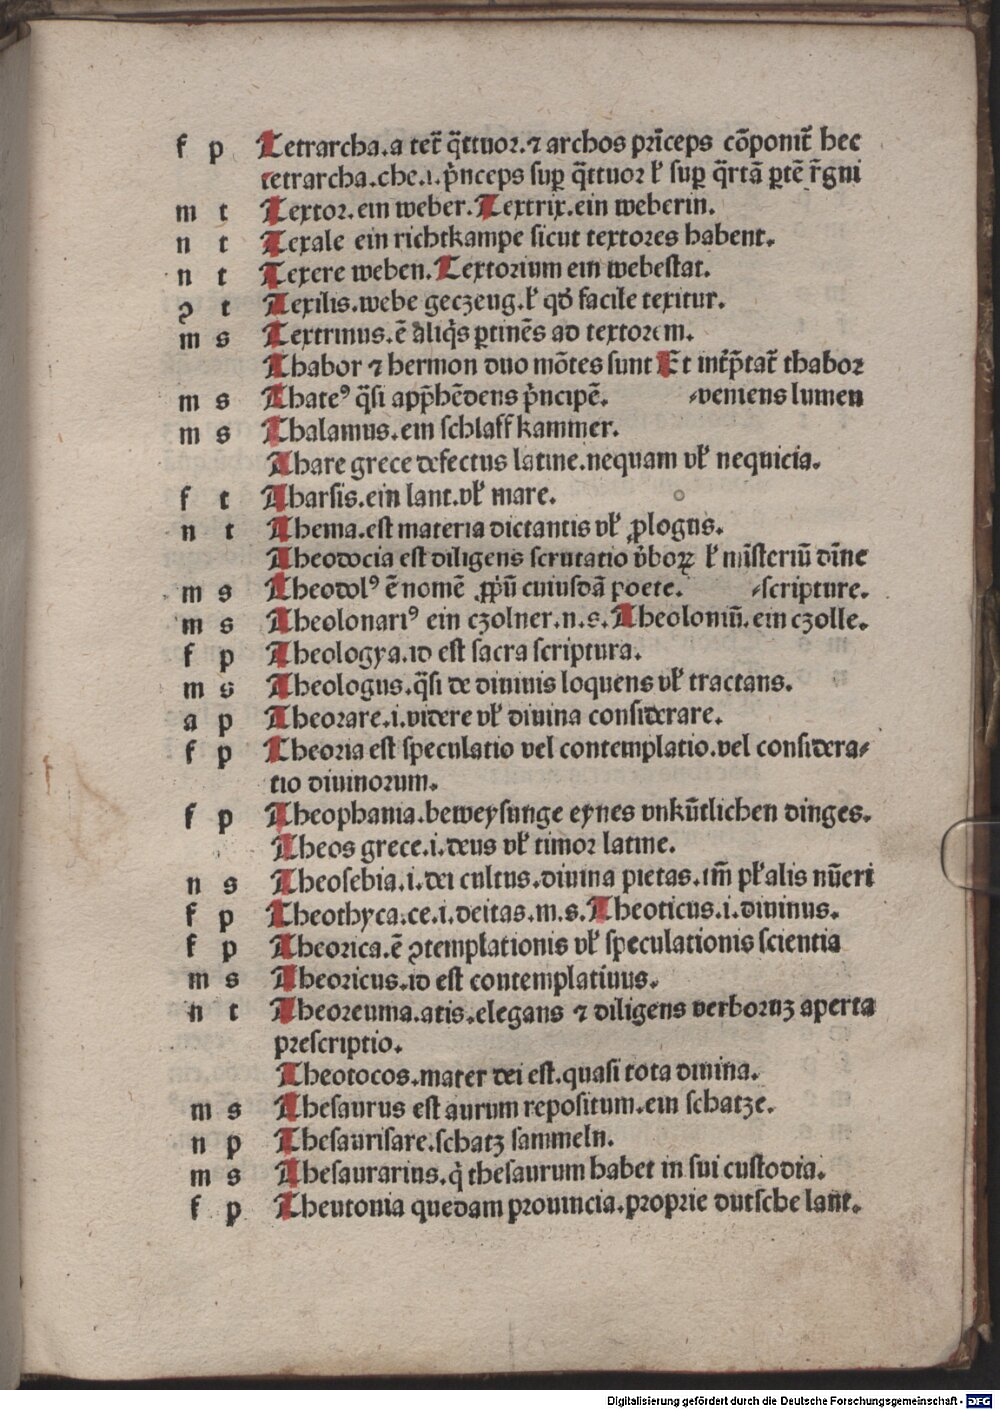 f p Tetrarcha.a tetͬ q̄ttuor.⁊ archos prīceps cōponitͬ hec
tetrarcha.che.i.p̄nceps suꝑ q̄ttuor ł suꝑ q̄rtā ꝑtē r̄gni
m t Textor.ein weber.Textrix.ein weberin.
n t Texale ein richtkampe sicut textores habent.
n t Texere weben.Textorium ein webestat.
ꝯ t Texilis.webe geczeug.ł qđ facile texitur.
m s Textrinus.ē aliq̇s ꝑtinēs ad textorem.
Thabor ⁊ hermon duo mōtes sunt Et int̄p̄tat̄ thabor
m s Thateꝰ q̄si app̄hēdens p̄ncipē. ⸗veniens lumen
m s Thalamus.ein schlaff kammer.
Thare grece defectus latine.nequam vł nequicia.
f t Tharsis.ein lant.vł mare.
n t Thema.est materia dictantis vł ꝓlogus.
Theodocia est diligens scrutatio v̄boꝝ ł mīsteriū diīne
m s Theodolꝰ ē nomē ꝓp̄ū cuiusdā poete. ⸗scripture.
m s Theolonariꝰ ein czolner.n.s.Theoloniū.ein czolle.
f p Theologya.id est sacra scriptura.
m s Theologus.q̄si de diuinis loquens vł tractans.
a p Theorare.i.videre vł diuina considerare.
f p Theoria est speculatio vel contemplatio.vel considera⸗
tio diuinorum.
f p Theophania.beweysunge eynes vnkūtlichen dinges.
Theos grece.i.deus vł timor latine.
n s Theosebia.i.dei cultus.diuina pietas.tm̄ płalis nūeri
f p Theothyca.ce.i.deitas.m.s.Theoticus.i.diuinus.
f p Theorica.ē ꝯtemplationis vł speculationis scientia
m s Theoricus.id est contemplatiuus.
n t Theoreuma.atis.elegans ⁊ diligens verboruꝫ aperta
prescriptio.
Theotocos.mater dei est.quasi tota diuina.
m s Thesaurus est aurum repositum.ein schatze.
n p Thesaurisare.schatz sammeln.
m s Thesaurarius.q̇ thesaurum habet in sui custodia.
f p Theutonia quedam prouincia.proprie dutsche lant.
Digitalisierung gefördert durch die Deutsche Forschungsgemeinschaft - DFG